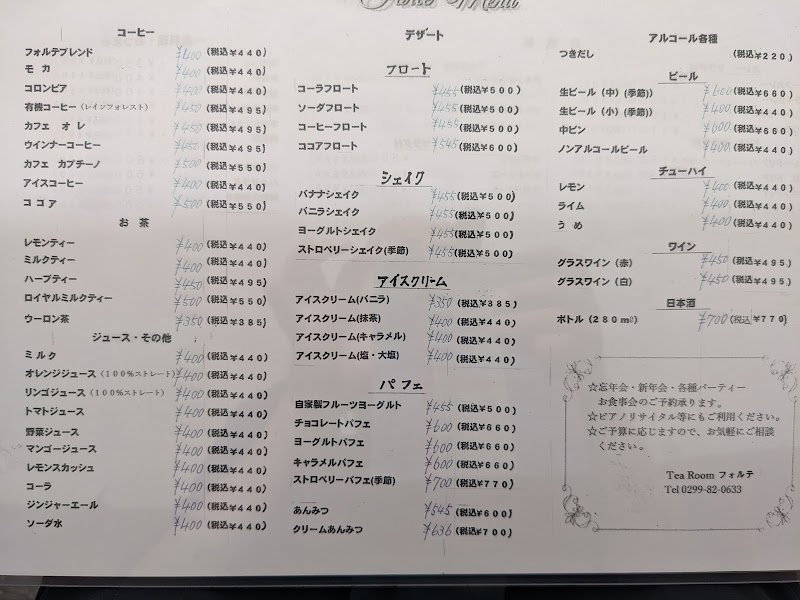 Menu
コーヒー
フォルテブレンド ¥400 (税込¥440)
モカ ¥400 (税込¥440)
コロンビア ¥400 (税込¥440)
有機コーヒー(レインフォレスト) ¥450 (税込¥495)
カフェ オレ ¥450 (税込¥495)
ウインナーコーヒー ¥450 (税込¥495)
カフェ カプチーノ ¥500 (税込¥550)
アイスコーヒー ¥400 (税込¥440)
ココア ¥500 (税込¥550)
お茶
レモンティー ¥400 (税込¥440)
ミルクティー ¥400 (税込¥440)
ハーブティー ¥450 (税込¥495)
ロイヤルミルクティー ¥500 (税込¥550)
ウーロン茶 ¥350 (税込¥385)
ジュース・その他
ミルク ¥400 (税込¥440)
オレンジジュース(100%ストレート) ¥400 (税込¥440)
リンゴジュース(100%ストレート) ¥400 (税込¥440)
トマトジュース ¥400 (税込¥440)
野菜ジュース ¥400 (税込¥440)
マンゴージュース ¥400 (税込¥440)
レモンスカッシュ ¥400 (税込¥440)
コーラ ¥400 (税込¥440)
ジンジャーエール ¥400 (税込¥440)
ソーダ水 ¥400 (税込¥440)
デザート
フロート
コーラフロート ¥455 (税込¥500)
ソーダフロート ¥455 (税込¥500)
コーヒーフロート ¥455 (税込¥500)
ココアフロート ¥545 (税込¥600)
シェイク
バナナシェイク ¥455 (税込¥500)
バニラシェイク ¥455 (税込¥500)
ヨーグルトシェイク ¥455 (税込¥500)
ストロベリーシェイク(季節) ¥455 (税込¥500)
アイスクリーム
アイスクリーム(バニラ) ¥350 (税込¥385)
アイスクリーム(抹茶) ¥400 (税込¥440)
アイスクリーム(キャラメル) ¥400 (税込¥440)
アイスクリーム(塩・大塩) ¥400 (税込¥440)
パフェ
自家製フルーツヨーグルト ¥455 (税込¥500)
チョコレートパフェ ¥600 (税込¥660)
ヨーグルトパフェ ¥600 (税込¥660)
キャラメルパフェ ¥600 (税込¥660)
ストロベリーパフェ(季節) ¥700 (税込¥770)
あんみつ ¥545 (税込¥600)
クリームあんみつ ¥636 (税込¥700)
アルコール各種
つきだし (税込¥220)
ビール
生ビール(中)(季節)) ¥600 (税込¥660)
生ビール(小)(季節)) ¥400 (税込¥440)
中ビン ¥600 (税込¥660)
ノンアルコールビール ¥400 (税込¥440)
チューハイ
レモン ¥400 (税込¥440)
ライム ¥400 (税込¥440)
うめ ¥400 (税込¥440)
ワイン
グラスワイン(赤) ¥450 (税込¥495)
グラスワイン(白) ¥450 (税込¥495)
日本酒
ボトル(280㎖) ¥700 (税込¥770)
☆忘年会・新年会・各種パーティー
お食事会のご予約承ります。
☆ピアノリサイタル等にもご利用ください。
☆ご予算に応じますので、お気軽にご相談
ください。
Tea Room フォルテ
Tel 0299-82-0633